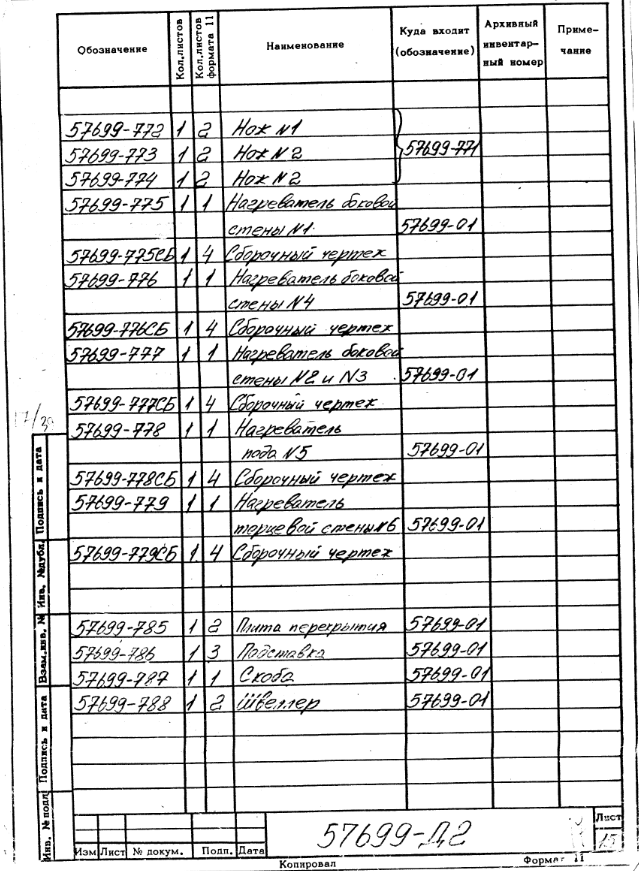 Обозначение Кол.листов Кол.листов формата 11 Наименование Куда входит (обозначение) Архивный инвентар-ный номер Приме-чание
57699-772 1 2 Нож N1
57699-773 1 2 Нож N2 57699-771
57699-774 1 2 Нож N2
57699-775 1 1 Нагреватель боковой
стены N1 57699-01
57699-775СБ 1 4 Сборочный чертеж
57699-776 1 1 Нагреватель боковой
стены N4 57699-01
57699-776СБ 1 4 Сборочный чертеж
57699-777 1 1 Нагреватель боковой
стены N2 и N3 57699-01
57699-777СБ 1 4 Сборочный чертеж
57699-778 1 1 Нагреватель
пода N5 57699-01
57699-778СБ 1 4 Сборочный чертеж
57699-779 1 1 Нагреватель
торцевой стены N6 57699-01
57699-779СБ 1 4 Сборочный чертеж
57699-785 1 2 Плита перекрытия 57699-01
57699-786 1 3 Подставка 57699-01
57699-787 1 1 Скоба 57699-01
57699-788 1 2 Швеллер 57699-01
Подпись и дата
Инв. №дубл.
Взам.инв. №
Подпись и дата
Инв. № подл.
57699-Д2
Лист
15
Изм Лист № докум. Подп. Дата
Копировал Формат 11